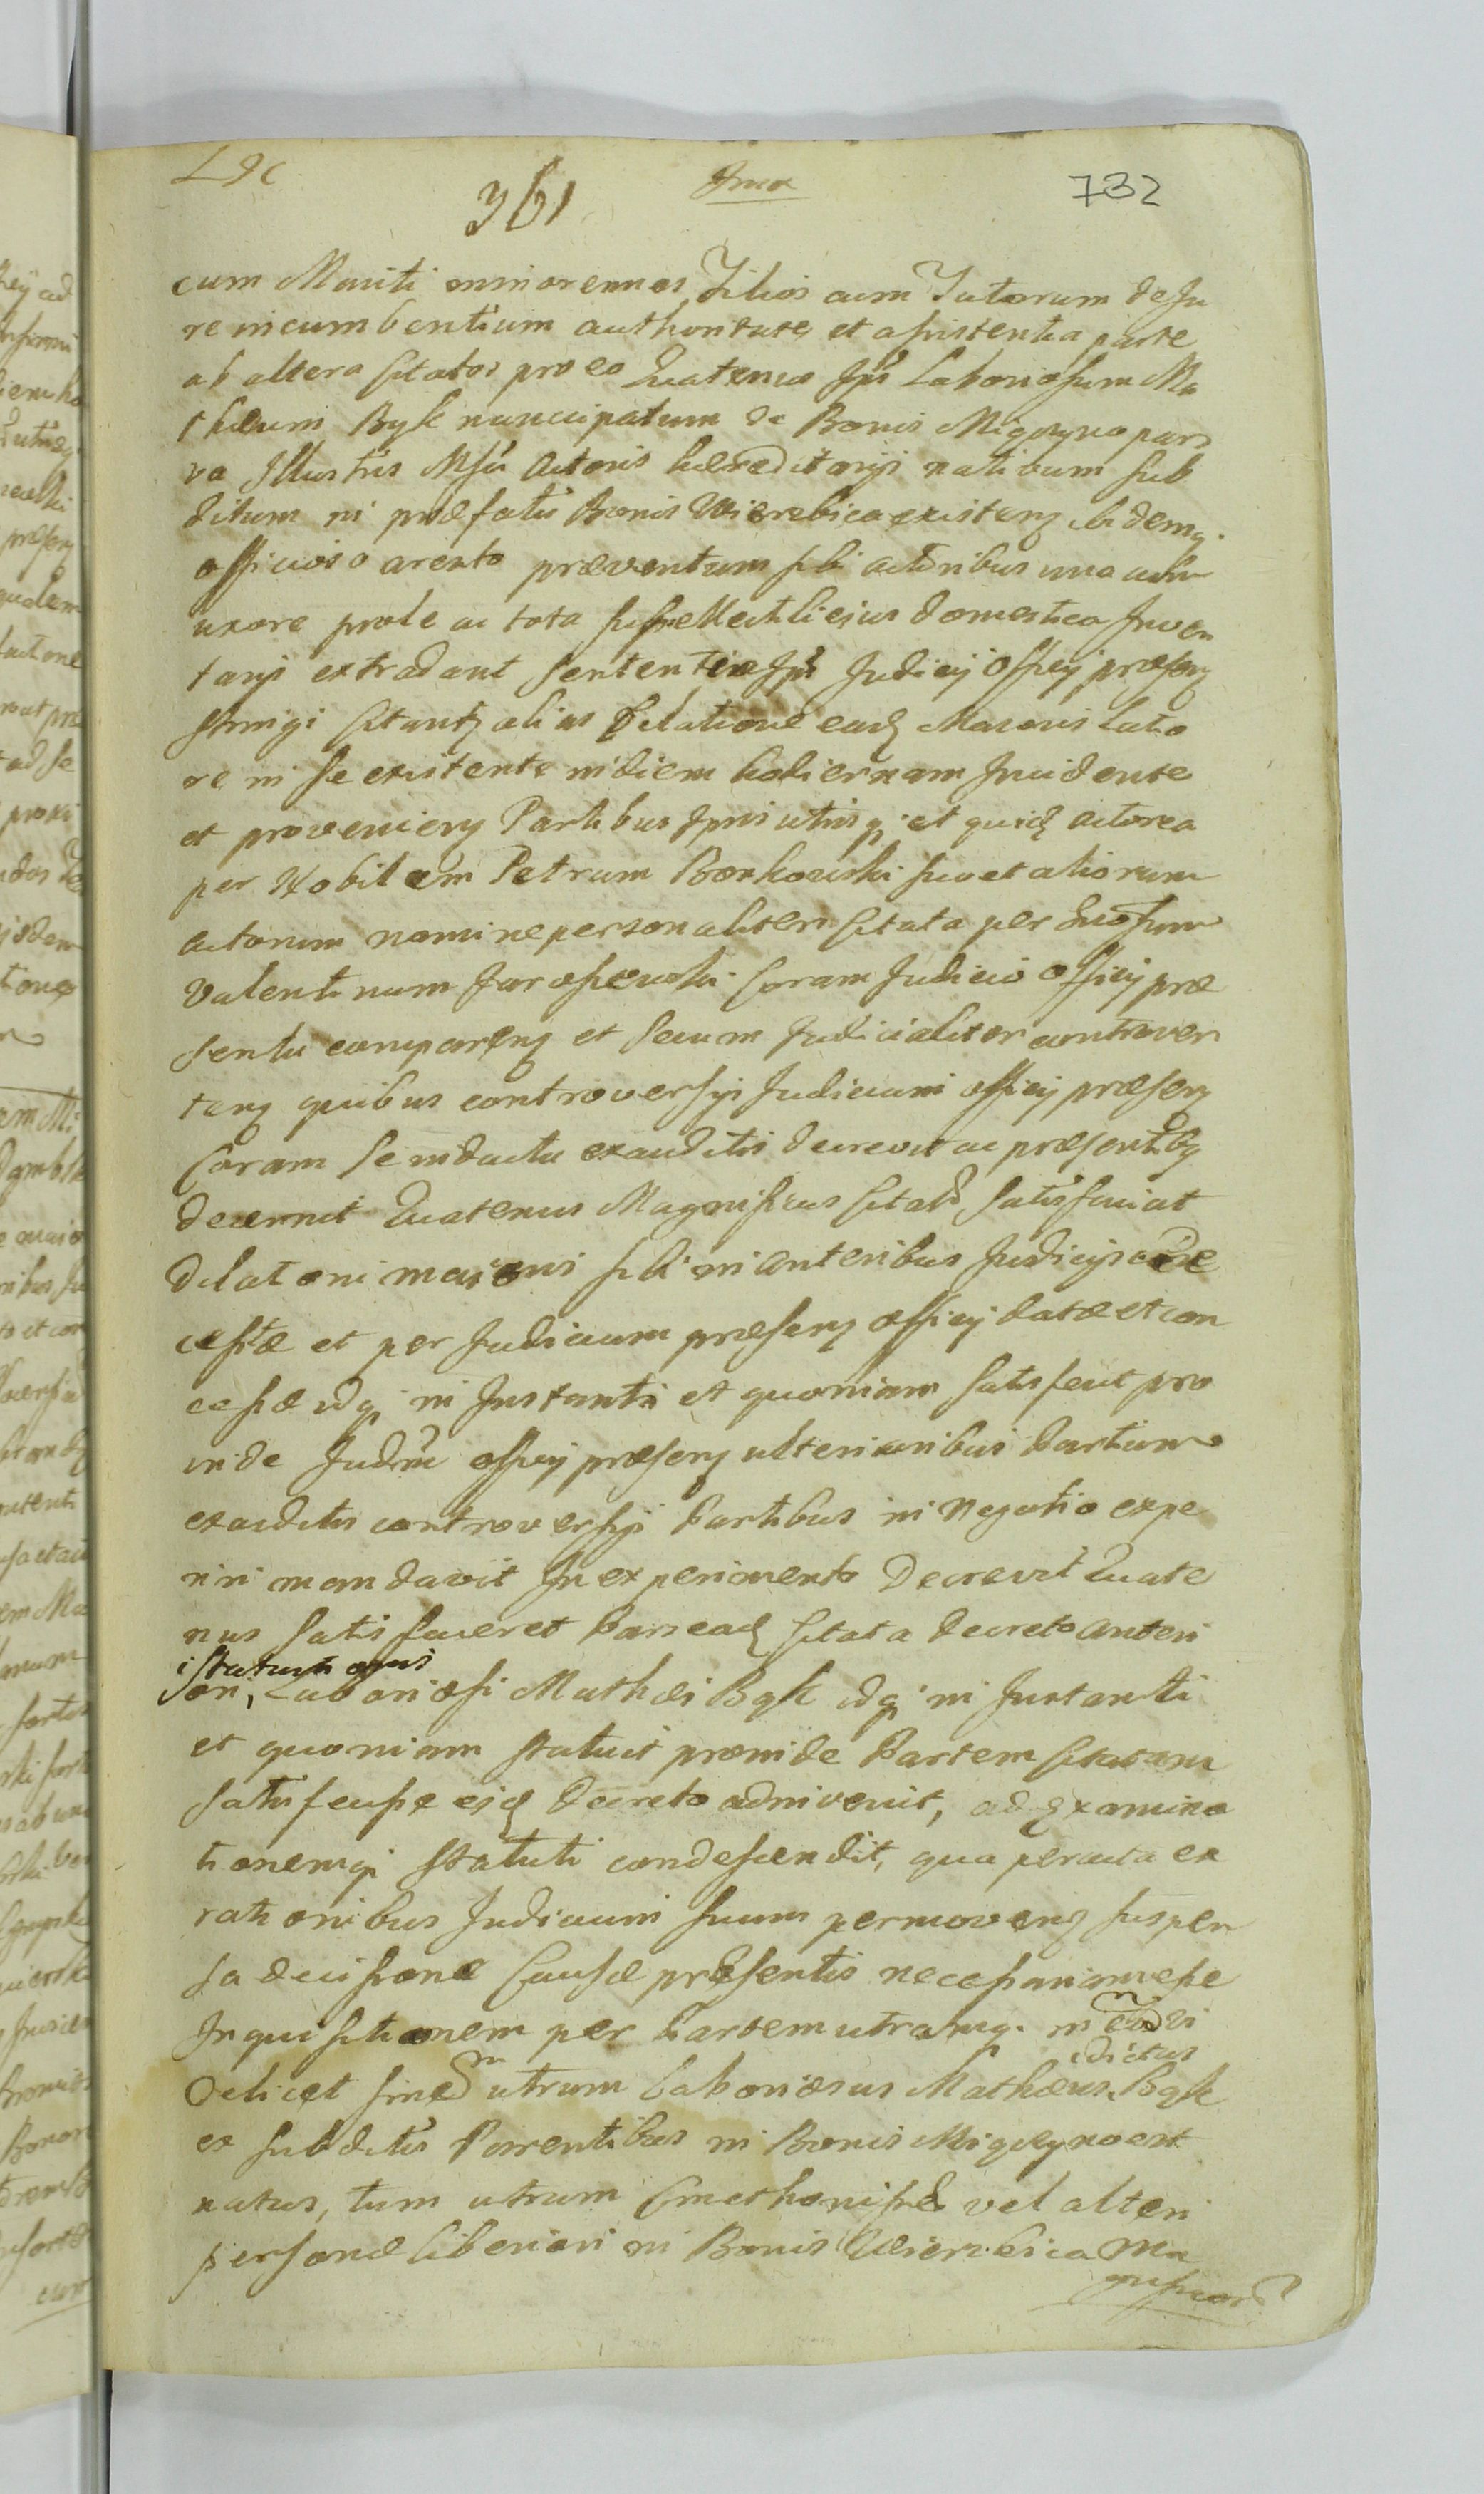 361
732
cum Mariti minorennes Filios cum Tutorum de Ju
re incumbentium authoritate et assistentia parte
ab altera Citatos pro eo Quatenus Ipsi Laboriosum Ma
thæum Byk nuncupatum de Bonis Migdzyno par
va Illustris Msci Actoris hæreditarijs nativum sub
ditum in præfatis Bonis Wierzbica existen ibidemq.
officioso aresto præventum sibi actoribus una cum
uxore prole ac tota supellectili ejus domestica Inven
tarijs extradant Sententiæ Ipsi Judicij Officij præsen
stringi Citant alias Dilatione ead Maioris Latio
re in se existente in diem hodiernam Incidente
et provenien Partibus Ipsis utrisq; et quid actorea
per Nobilem Petrum Borkowski suo et aliorum
actorum nomine personaliter Citata per Gnosum
Valentinum Jaroszewski Coram Judicio officij præ
senti comparen et secum Judicialiter controver
ten quibus controversijs Judicium officij præsen
Coram se inductis exauditis decrevit ac præsentibq
decernit Quatenus Magnificus Citats satisfaciat
Dilationi maioris sibi in anteribus Judicijs
et per Judicium præsen officij datæ et con
cessæ idq; in Instanti et quoniam satisfecit pro
inde Judm officij præsen ulterioribus Partium
exauditis controversijs Partibus in Negotio expe
riri mandavit In experimento Decrevit Quate
nus satisfaceret Pars ead Citata decreto anteri
istatutionis
ori, Laboriosi Mathæi Byk idq; in Instanti
et quoniam statuit proinde Partem Citatam
satisfecisse ejd Decreto adinvenit, ad Examina
tionemq; statuti condescendit, qua peracta ex
rationibus Judicium suum permoven suspen
sa decisione Causæ præsentis necessariam esse
Inquisitionem per Partem utramq. in
idictus
utrum Laboriosus Mathæus Byk
ex subditis Parentibus in Bonis Migdzyno est
natus, tum utrum Cmethonissæ vel alteri
personæ liberiori in Bonis Wierzbica Ma
gnificor